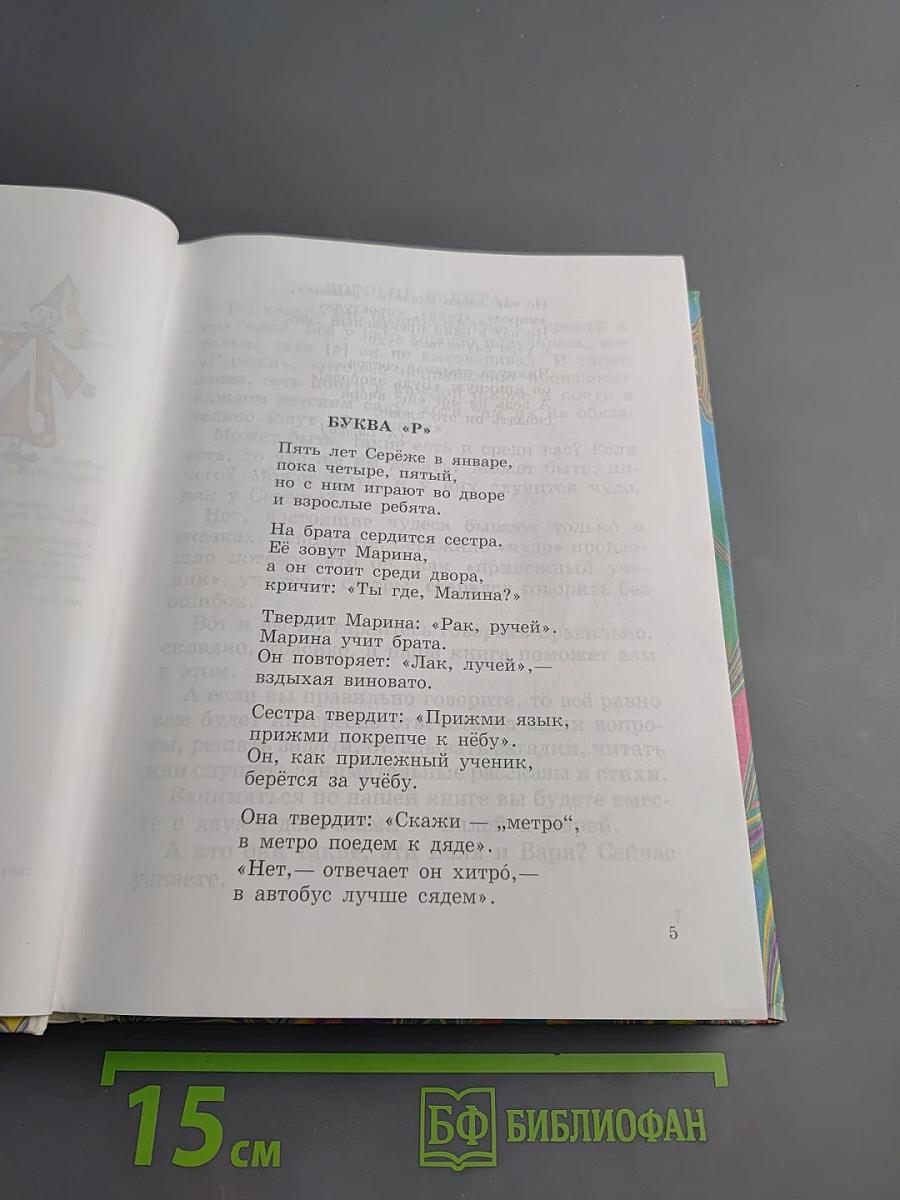 БУКВА «Р»
Пять лет Серёже в январе,
пока четыре, пятый,
но с ним играют во дворе
и взрослые ребята.
На брата сердится сестра.
Её зовут Марина,
а он стоит среди двора,
кричит: «Ты где, Малина?»
Твердит Марина: «Рак, ручей».
Марина учит брата.
Он повторяет: «Лак, лучей»,—
вздыхая виновато.
Сестра твердит: «Прижми язык,
прижми покрепче к нёбу».
Он, как прилежный ученик,
берётся за учёбу.
Она твердит: «Скажи — „метро“,
в метро поедем к дяде».
«Нет,— отвечает он хитро́,—
в автобус лучше сядем».
5
1997
15 см
БФ БИБЛИОФАН